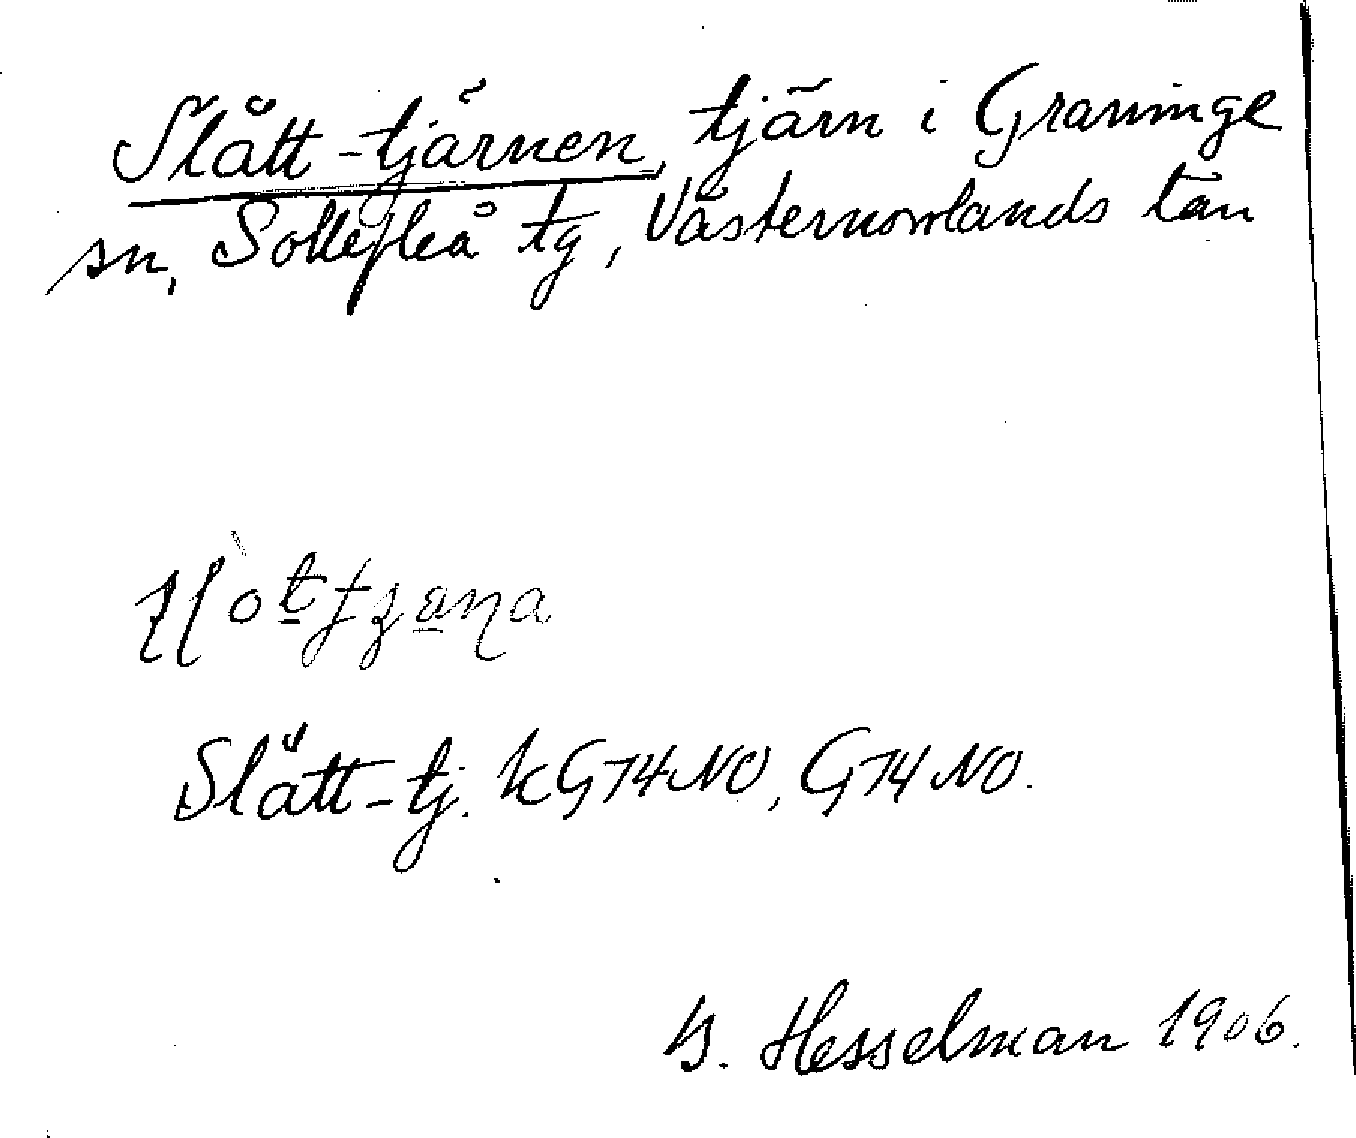 Slått-tjärnen, tjärn i Graninge
sn, Sollefteå tg, Västernorrlands län
Slått-tj. kG74NO, G74NO.
B. Hesselman 1906.